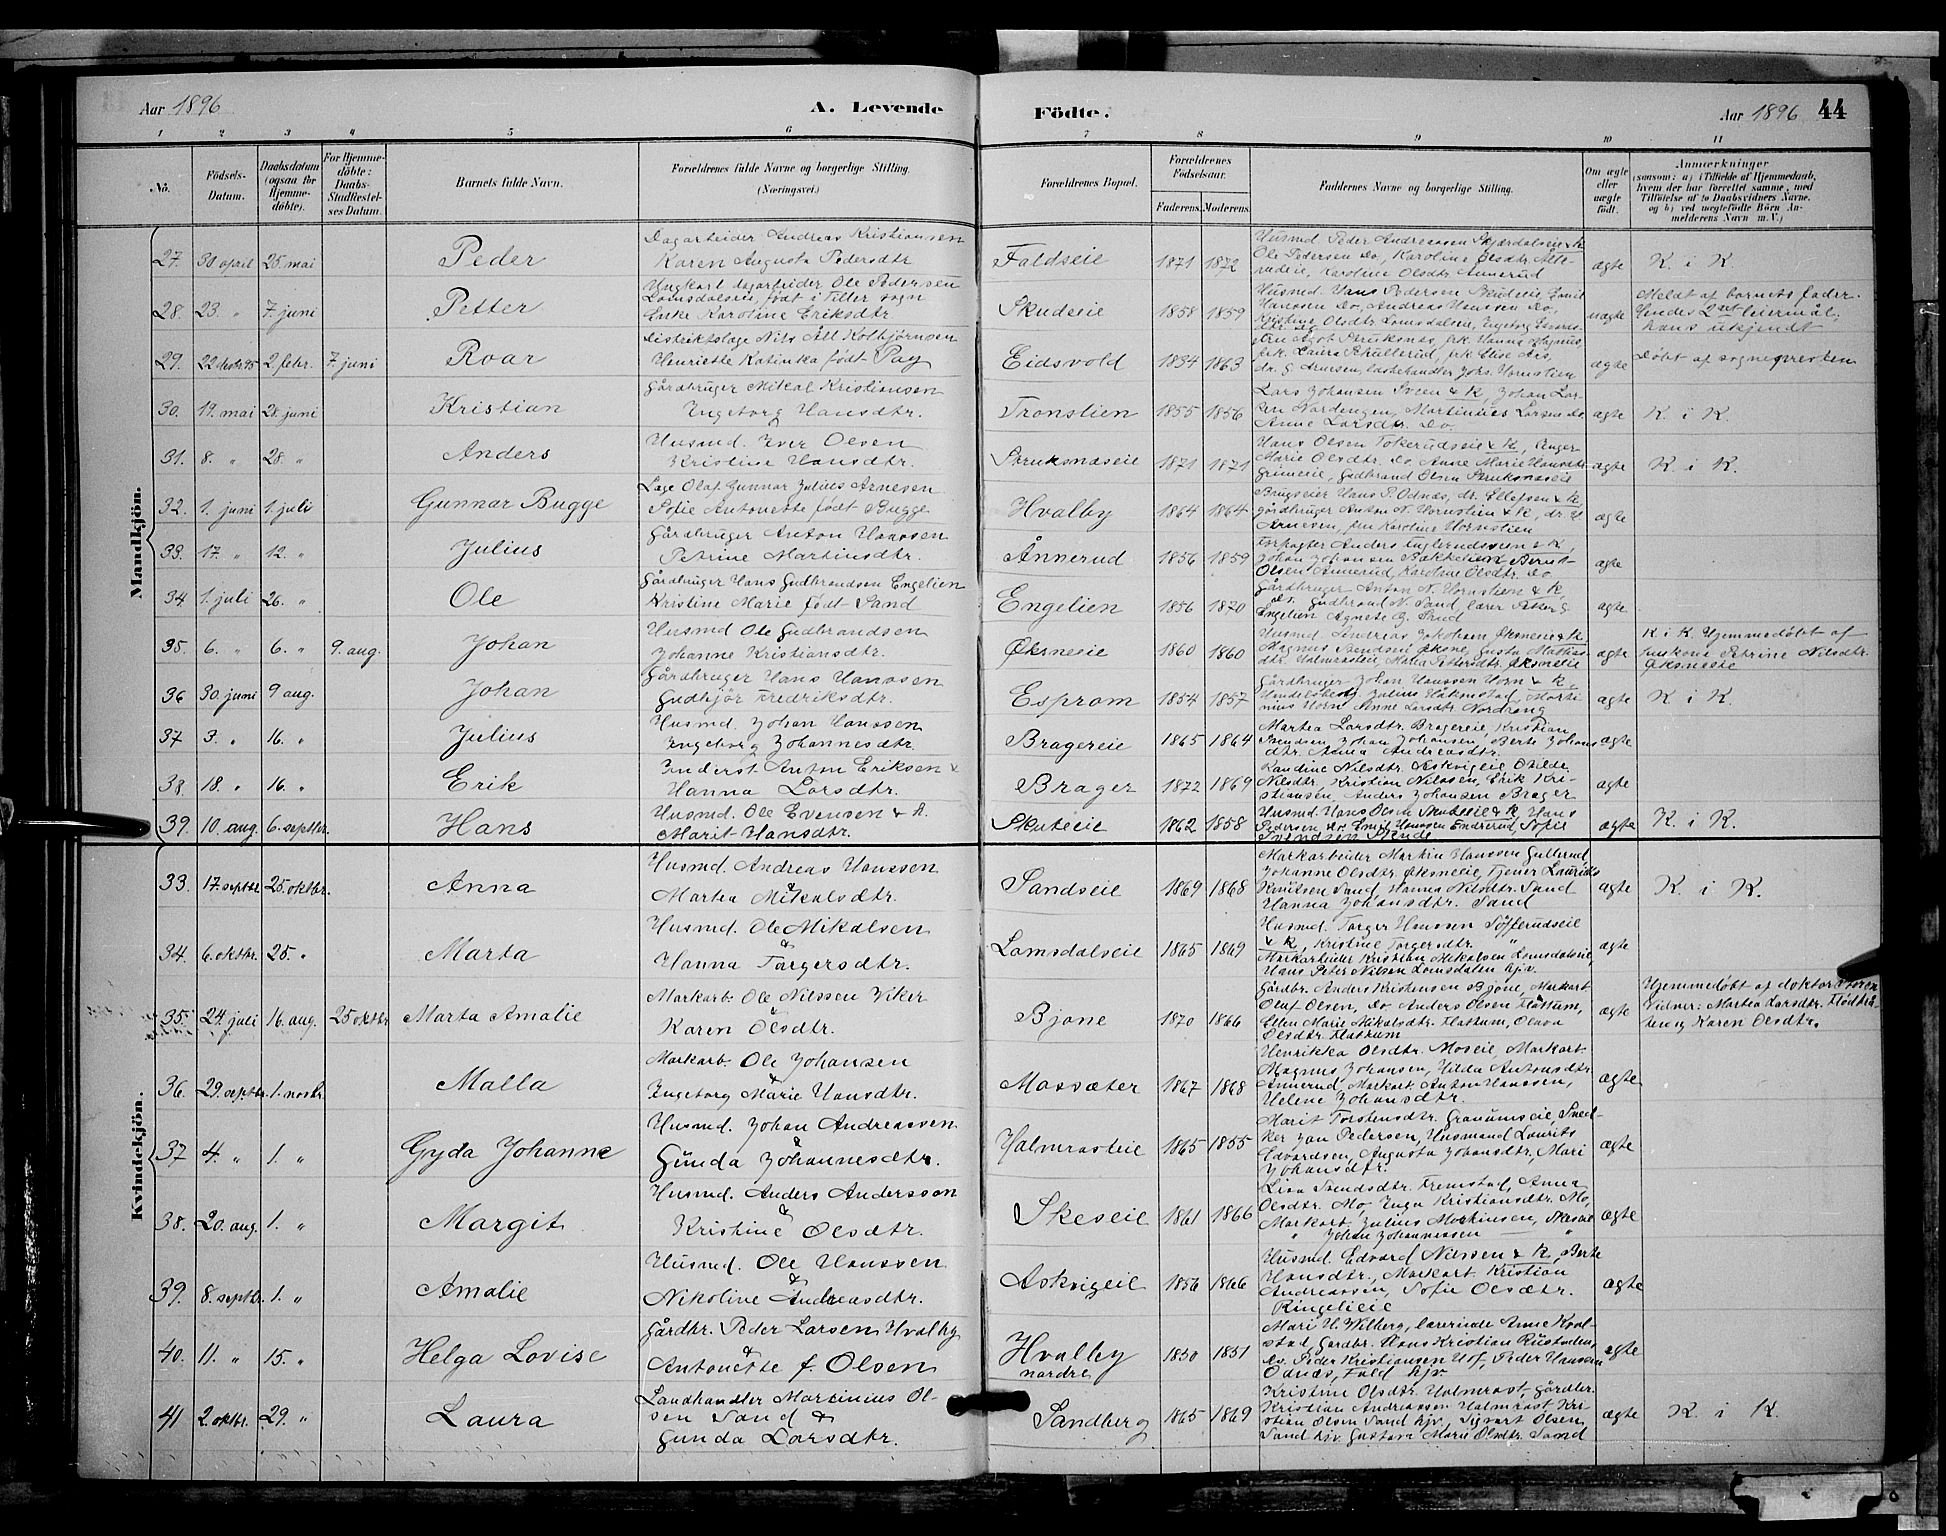 Aar 1896 A. Levende Födte. Aar 1896 44
1 2 3 4 5 6 7 8 9 10 11
No. Födsels-Datum. Daabsdatum (ogsaa for Hjemme-döbte). For Hjemme-döbte: Daabs-Stadfæstel-ses Datum. Barnets fulde Navn. Forældrenes fulde Navne og borgerlige Stilling. (Næringsvei.) Forældrenes Bopæl. Forældrenes Födselsaar. Faderens. Moderens. Faddernes Navne og borgerlige Stilling. Om ægte eller uægte födt. Anmærkninger (saasom: a) i Tilfælde af Hjemmedaab, hvem der har forrettet samme, med Tilföielse af to Daabsvidners Navne, og b) ved uægtefödte Börn An-melderens Navn m. V.)
Mandkjön.
27. 30 april 25. mai Peder Dagarbeider Andreas Kristiansen
Karen Augusta Pedersdtr. Faldseie 1871 1872 Husmd Peder Andreassen Skjærdalseie & K
Ole Pedersen Do, Karoline Olsdtr. Karoline Olsdtr. Annerud ægte K. i K.
28. 23. " 7 juni Petter Ungkarl dagarbeider Ole Pedersen
Lomsdalseie, født i Tilter sogn
Enke Karoline Eriksdtr. Skudeie 1858 1859 Husmd. Hans Pedersen Skudeie Emil
Hanssen Do, Andreas Hanssen Do,
Kristine Olsdtr Lomsdalseie, Ingeborg uægte Meldt af barnets fader.
Hendes 2det leiermål;
hans ukjendt
29. 22 decbr 95 2. febr. 7. juni Roar Distriktslæge Nils Kolbjørnsen
Henriette Katinka født Pay Eidsvold 1834 1863 frk. Laura Skullerud, frk Elise
dr. G Arnesen, Johs. Hornslien ægte Døbt af sognepresten
30. 19. mai 28. juni Kristian Gårdbruger Mikal Kristiansen
Ingeborg Hansdtr. Tronslien 1855 1856 Lars Johansen Sveen & K Johan Lar-
sen Nordengen, Martinius Larsen Do
Anne Larsdtr. Do. ægte K i K.
31. 8. " 28. " Anders Husmd. Iver Olsen
Kristine Hansdtr. Struksnæseie 1871 1871 Hans Olsen Tokerudseie & K, Inger
Marie Olsdtr. Do. Anne Marie Hansdtr
Grimeie, Gudbrand Olsen Struksnæseie ægte K. i K.
32. 1. juni 1. juli Gunnar Bugge Læge Olaf Gunnar Julius Arnesen
Sofie Antonette født Bugge Hvalby 1864 1864 Brugseier Hans P. Odnæs, dr. Ellefsen & K
gårdbruger Anton N. Hornslien & K, dr. U
Arnesen, fru Karoline Hornslien ægte
33. 17. " 12. " Julius Gårdbruger Anton Hanssen
Petrine Martinsdtr. Ånnerud 1856 1859 Forpagter Anders & K,
Johan Johansen Bakkeeie Bernt
Olsen Annerud, Karoline Olsdtr. Do. ægte
34 1. juli 26. " Ole Gårdbruger Hans Gudbrandsen Engelien
Kristine Marie født Sand Engelien 1856 1870 Gårdbruger Anton N. Hornslien & K
Do. Gudbrand N. Sand, lærer G
Engelien Agnete G. Sand ægte
35. 6. " 6. " 9. aug. Johan Husmd Ole Gudbrandsen
Johanne Kristiansdtr. Økrneie 1860 1860 Husmd. Andreas Jakobsen Øksneie & K
Magnus Svendsen Øksne, Gusta Mathias-
dtr. Halmrasteie, Maria Pettersdtr. Øksneeie ægte K i K. Hjemmedøbt af
huskone Petrine Nilsdtr.
Øksneeie
36 30. juni 9 aug. Johan Gårdbruger Hans Hanssen
Gudbjør Fredriksdtr. Esprom 1854 1857 Gårdbruger Johan Hanssen Horn & K,
Julius Håkenstad, Marti-
nius Horn Anne Larsdtr. Nordrang ægte K i K.
37 3. " 16. " Julius Husmd. Johan Hanssen
Ingeborg Johannesdtr. Bragereie 1865 1864 Martea Larsdtr. Bragereie, Kristian
Svendsen, Johan Johansen, Berte Johans
dtr. Anna Andreasdtr. ægte
38. 18. " 16. " Erik Inderst Anton Eriksen &
Hanna Larsdtr. Brager 1872 1869 Randine Nilsdtr. Askvigeie Otilde
Nilsdtr. Kristian Nilssen, Erik Kri-
stiansen, Anders Johansen Brager ægte
39. 10. aug. 6. septbr. Hans Husmd. Ole Evensen & K.
Marit Hansdtr. Skuteeie 1862 1858 Husmd. Hans Olsen Skuteeie & K. Hans
Pedersen Do. Emil Hanssen Endrerud, Sofie
Svendsen ægte K. i K.
Kvindekjön.
33. 17. septbr. 25. oktbr. Anna Husmd. Andreas Hanssen
&
Martea Mikalsdtr. Sandseie 1869 1868 Markarbeider Martin Hanssen Gullerud,
Johanne Olsdtr. Øksneeie, Tjener Laurits
Knutsen Sand, Hanna Nilsdtr. Sand
Hanna Johansdtr. Sand ægte K. i K.
34. 6. oktbr. 25. " Marta Husmd. Ole Mikalsen
&
Hanna Torgersdtr. Lomsdalseie 1865 1869 Husmd. Torger Hanssen Søfferudseie
& K, Kristine Torgersdtr. "
Markarbeider Kristian Mikalsen Lomsdalseie,
Hans Peter Nilsen Lomsdalen hjv. ægte
35. 24. juli 16. aug. 25 oktbr Marta Amalie Markarb. Ole Nilssen Viker
Karen Olsdtr. Bjone 1870 1866 Gårdbr. Anders Kristensen Bjone, Markarb.
Oluf Olsen, Do Anders Olsen Flattum,
Ellen Marie Mikalsdtr. Flattum, Olava
Olsdtr. Flattum ægte Hjemmedøbt af doktor Støren
Vidner: Martea Larsdtr.
og Karen Olsdtr.
36. 29. septbr. 1. novbr. Malla Markarb. Ole Johansen
&
Ingeborg Marie Hansdtr. Mosvæter 1867 1868 Henrikka Olsdtr. Moseie, Markarb.
Magnus Johansen, Hilda Antonsdtr.
Annerud, Markarb. Anton Hanssen,
Helene Johansdtr. ægte
37 4. " 1. " Gyda Johanne Husmd. Johan Andreassen
&
Gunda Johannesdtr. Halmrasteie 1865 1855 Marit Torstensdtr. Granumseie, Sned-
ker Jan Pedersen, Husmand Laurits
Edvardsen, Augusta Johansdtr., Mari
Johansdtr. ægte
38. 20. aug. 1. " Margit Husmd. Anders Anderssen
&
Kristine Olsdtr. Skeseie 1861 1866 Lisa Svendsdtr. Fremstad, Anna
Olsdtr. Mo, Inga Kristiansdtr. Mo,
Markarb. Julius Martinsen, Skeseie
" Johan Johannessen — " ægte
39. 8. septbr. 1. " Amalie Husmd. Ole Hanssen
&
Nikoline Andreasdtr. Askvigeie 1856 1866 Husmd. Edvard Nilssen & K, Berte
Hansdtr., Markarb Kristian
Andreassen, Sofie Olsdtr.
Ringelieie ægte
40. 11. " 15. " Helga Lovise Gårdbr. Peder Larsen Hvalby
&
Antonette f. Olsen Hvalby
nordre 1850 1851 Mari H. Wilberg, lærerinde Anne Kval-
stad, Gårdbr. Hans Kristian Rustaden,
Do. Peder Kristiansen Hof, Peder Hanssen
Odnæs, Fald hjv. ægte
41 2. oktbr. 29. " Laura Landhandler Martinius Ol-
sen Sand &
Gunda Larsdtr. Sandberg 1865 1869 Kristine Olsdtr. Halmrast, Gårdbr.
Kristian Andreassen Halmrast Kri-
stian Olsen Sand hjv., Sigvart Olsen
Sand hjv. Gustava Marie Olsdtr. Sand ægte K. i K.